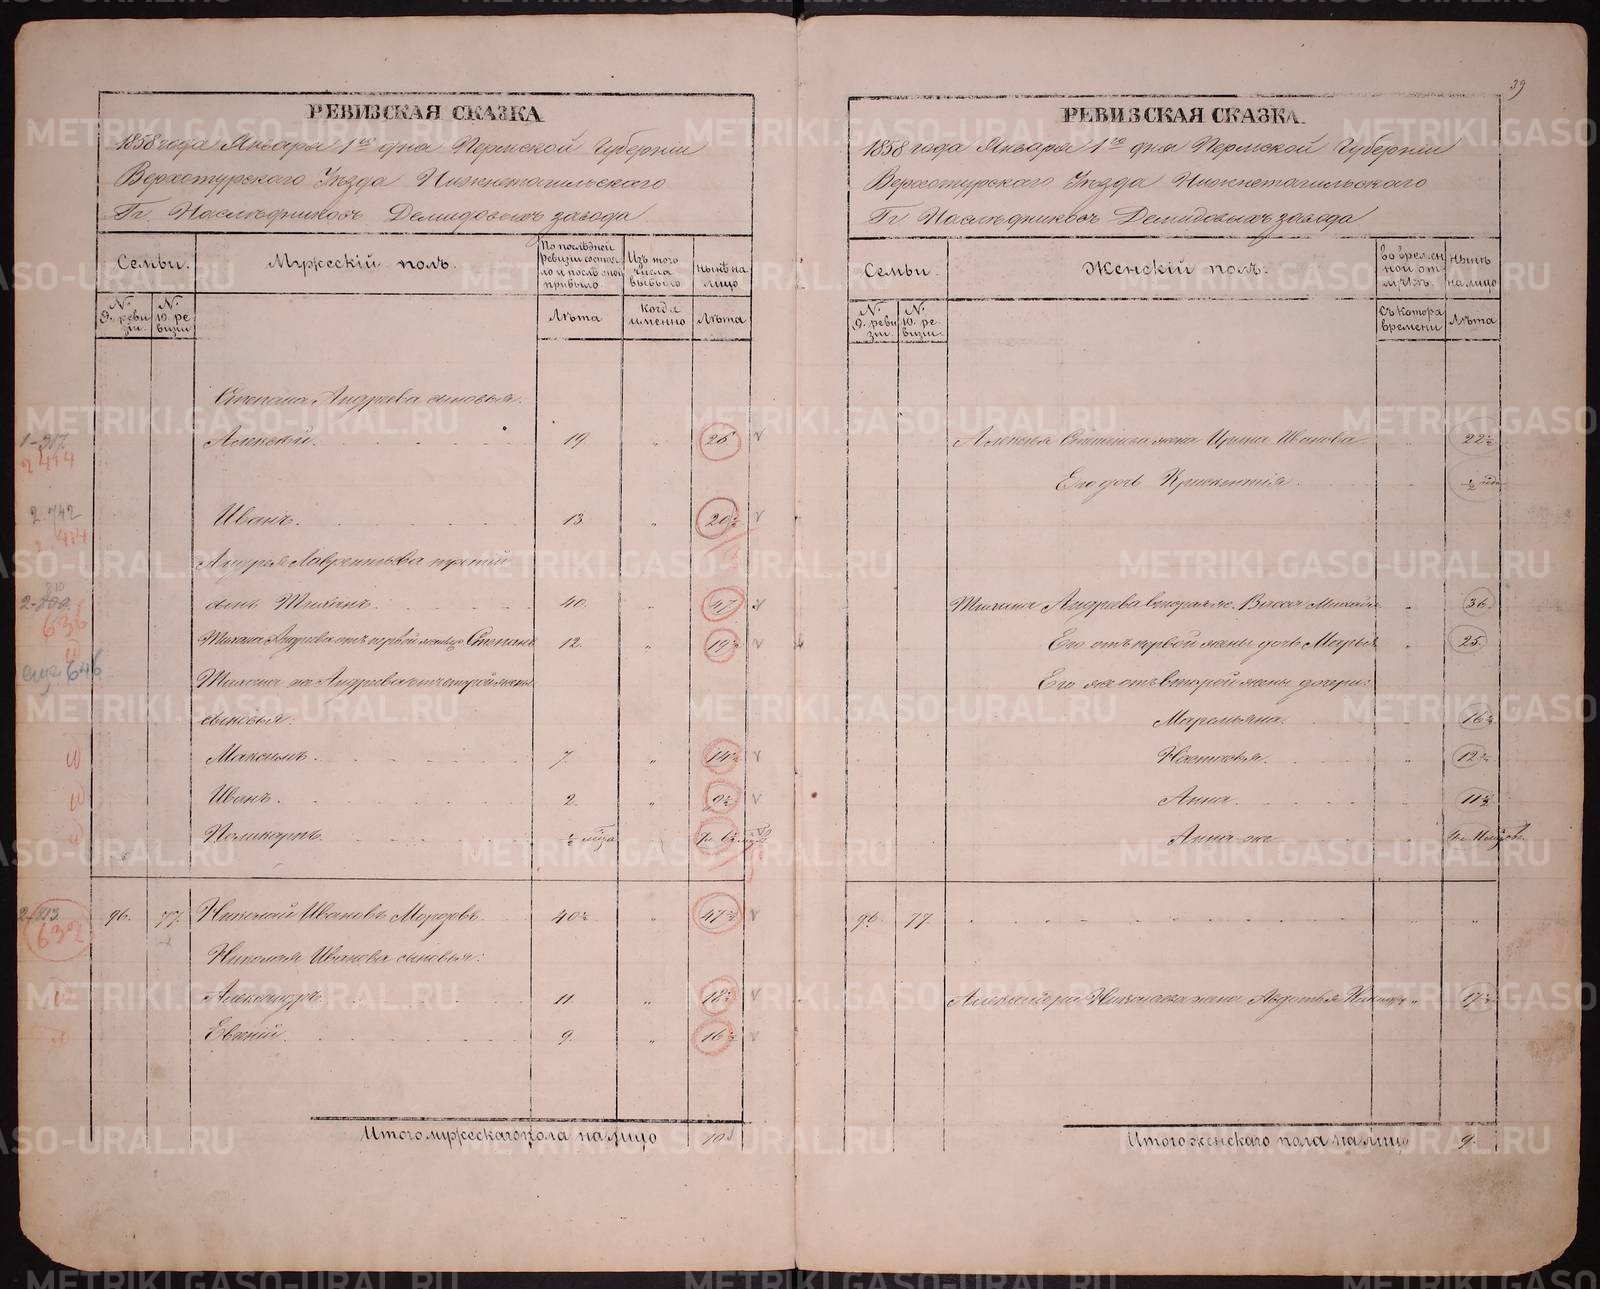 РЕВИЗСКАЯ СКАЗКА
1858 года Января 1го дня Пермской Губернии
Верхотурского Уезда Нижнетагильского
Гг. Наследниковъ Демидовыхъ завода
Семьи.
Мужескій полъ.
По послѣдней ревизіи состояло и послѣ оной прибыло
Изъ того числа выбыло
Нынѣ на лицо
№ 9. ревизіи.
№ 10. ревизіи
Лѣта
Когда именно
Лѣта
Степана Андреева сыновья:
Алексѣй. 19. „ 26
Иванъ. 13 „ 20½
Андрея Лаврентьева третій
сынъ Тихонъ. 40. „ 47
Тихона Андреева отъ первой жены Степанъ 12. „ 19½
Тихона же Андреева отъ второй жены
сыновья:
Максимъ. 7. „ 14½
Иванъ. 2. „ 9½
Поликарпъ. ½ года
96. 77. Николай Ивановъ Морозовъ 40½ „ 47½
Николая Иванова сыновья:
Александръ. 11 „ 18½
Евгеній. 9. „ 16½
Итого мужескаго пола на лицо 10
39
РЕВИЗСКАЯ СКАЗКА.
1858 года Января 1го дня Пермской Губерніи
Верхотурского Уезда Нижнетагильского
Гг Наследниковъ Демидовыхъ завода
Семьи.
Женскій полъ.
Во временной отлучкѣ
Нынѣ на лицо
№ 9. ревизіи.
№ 10. ревизіи.
Съ котора времени
Лѣта
Алексѣя Степанова жена Ирина Иванова 22½
Его дочь Крискентія. ½ года
Тихона Андреева вторая ж. Васса Михайл. „ 36.
Его отъ первой жены дочь Марья „ 25.
Его же отъ второй жены дочери:
Маремьяна. 16½
Настасья. 12½
Анна. 11½
Анна же
96 77. „ „
Александра Николаева жена Авдотья „ 17½
Итого женскаго пола на лицо 9.
METRIKI.GASO-URAL.RU